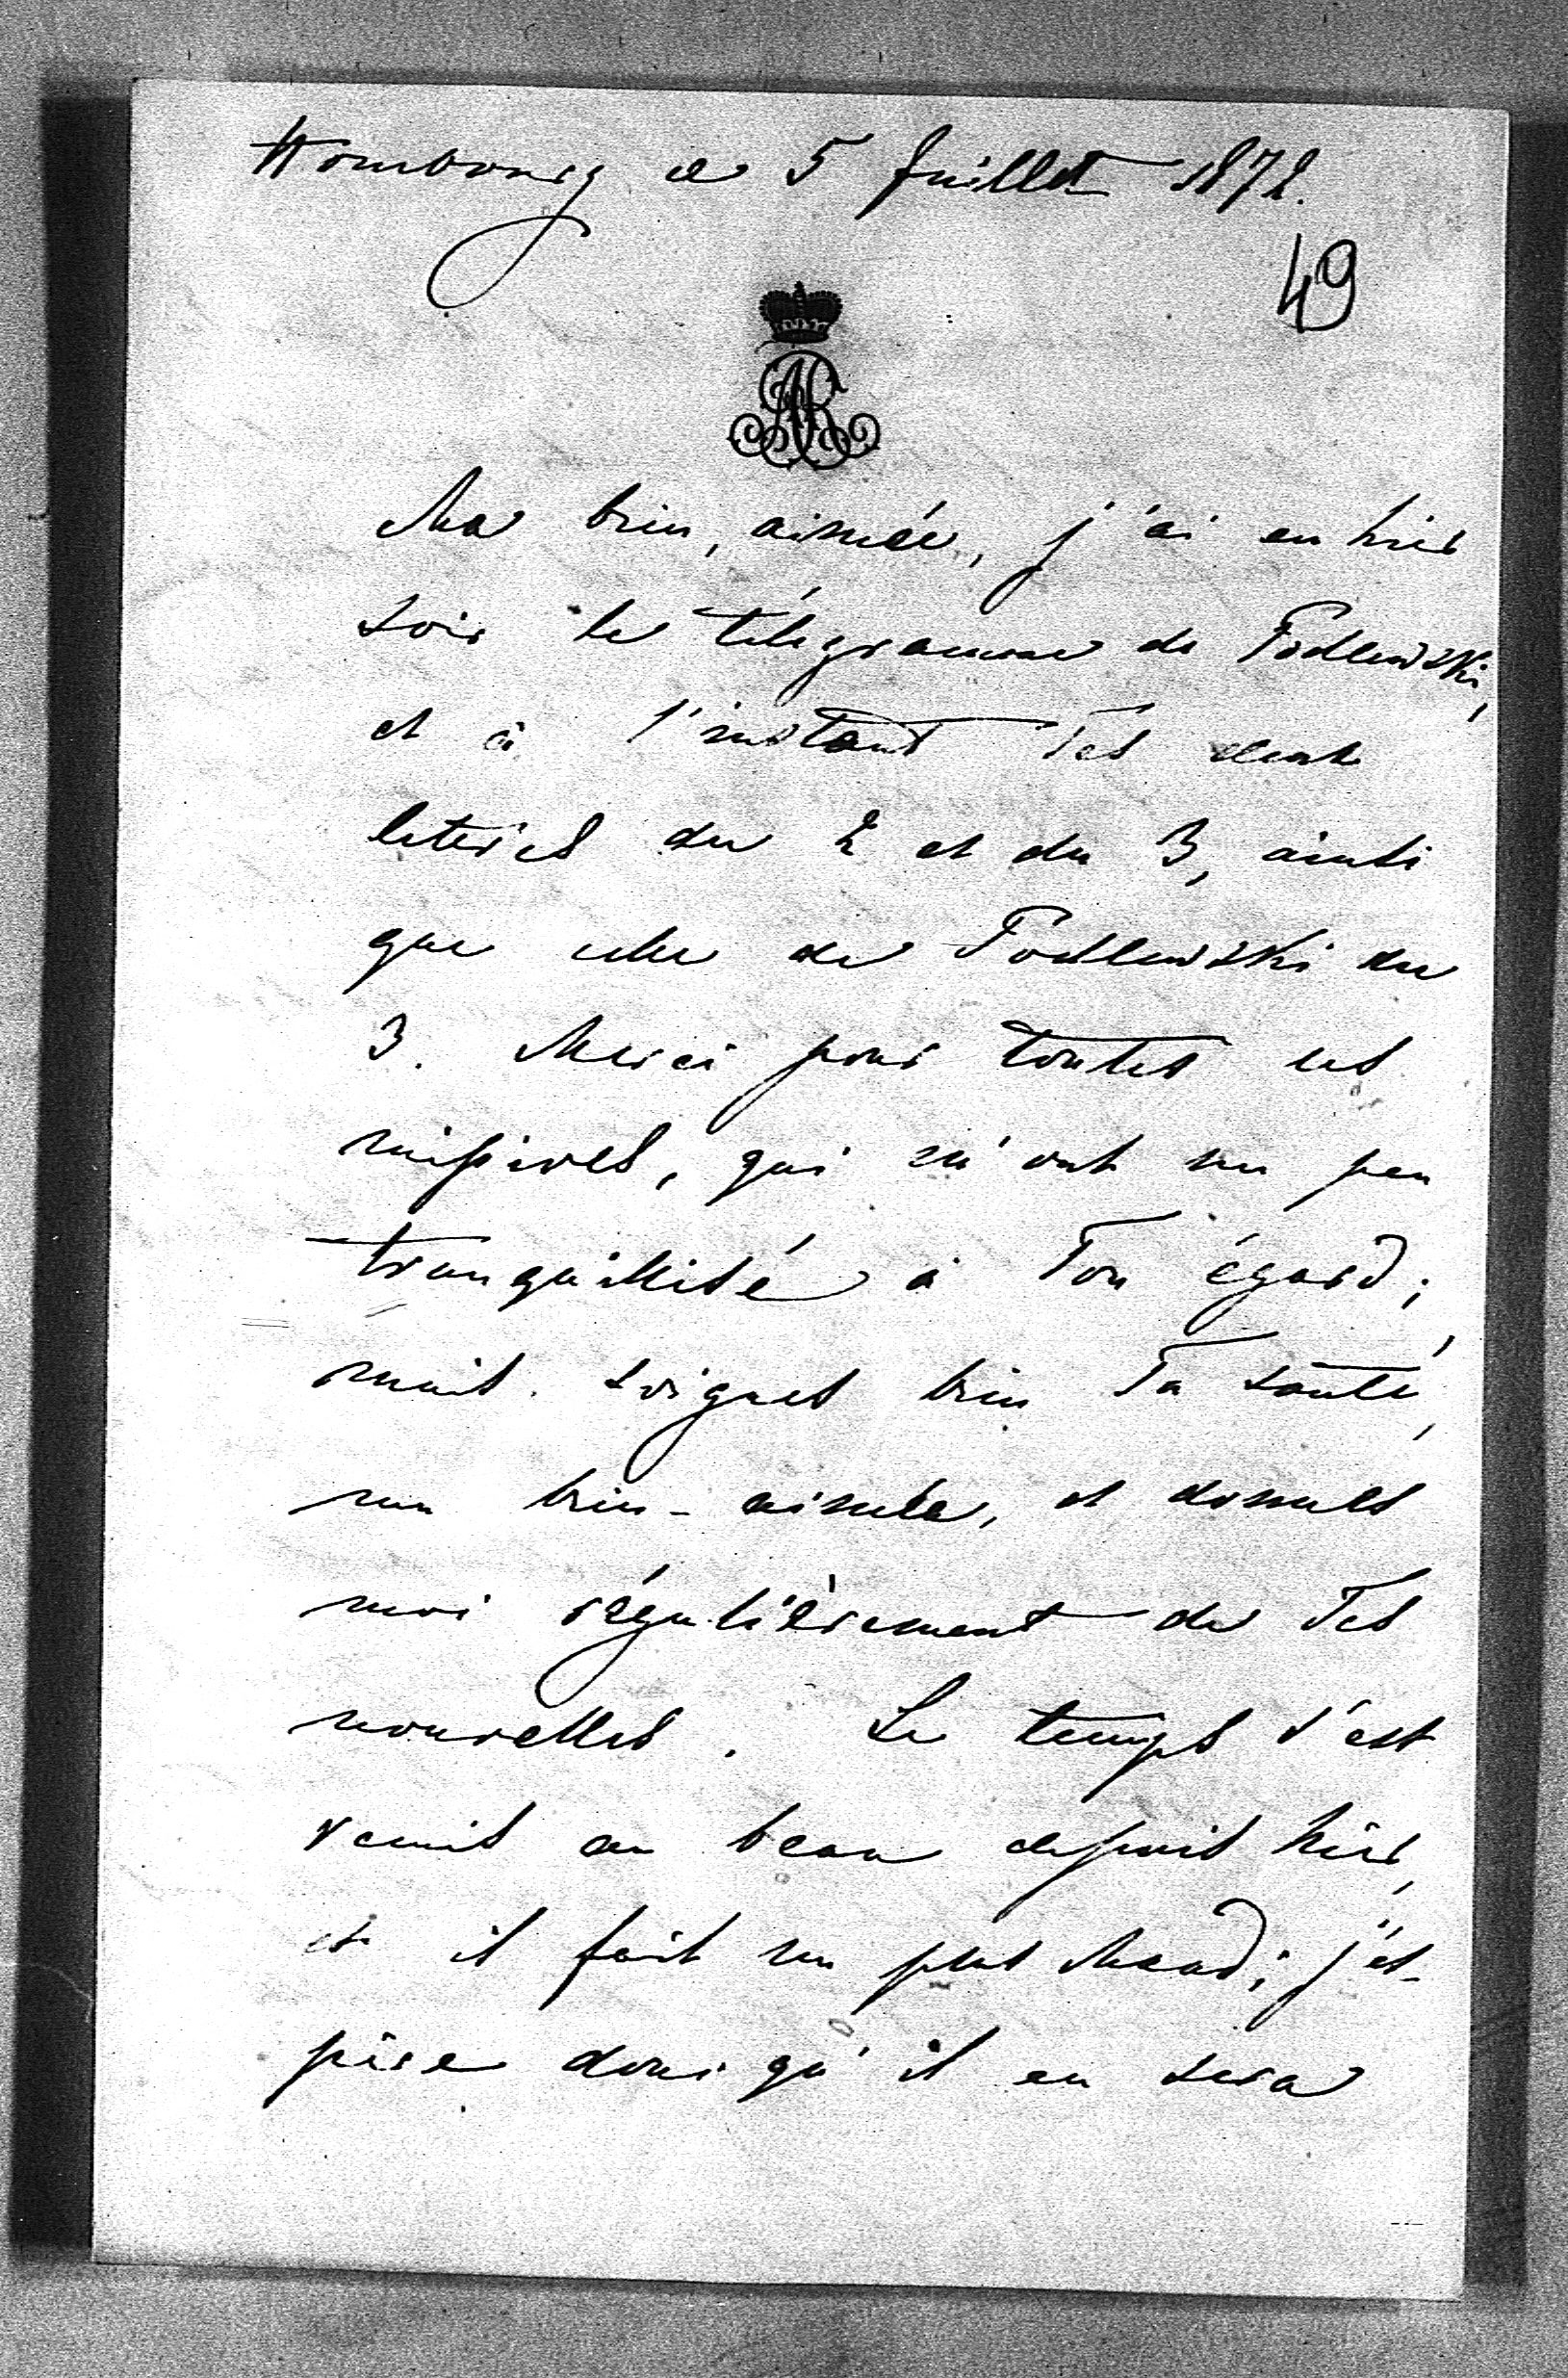 Hombourg ce 5 Juillet 1872.
49
Ma bien, aimée, j'ai eu hier
soir le télégramme de Podlewski,
et à l'instant Tes deux
lettres du 2 et du 3, ainsi
que celle de Podlewski du
3. Merci pour toutes ces
missives, qui m'ont un peu
tranquillisé à Ton égard;
mais soignes bien Ta santé,
ma bien-aimée, et donnes
moi régulièrement de Tes
nouvelles. Le temps s'est
remis au beau depuis hier,
et il fait un plus chaud; j'es-
père donc qu'il en sera